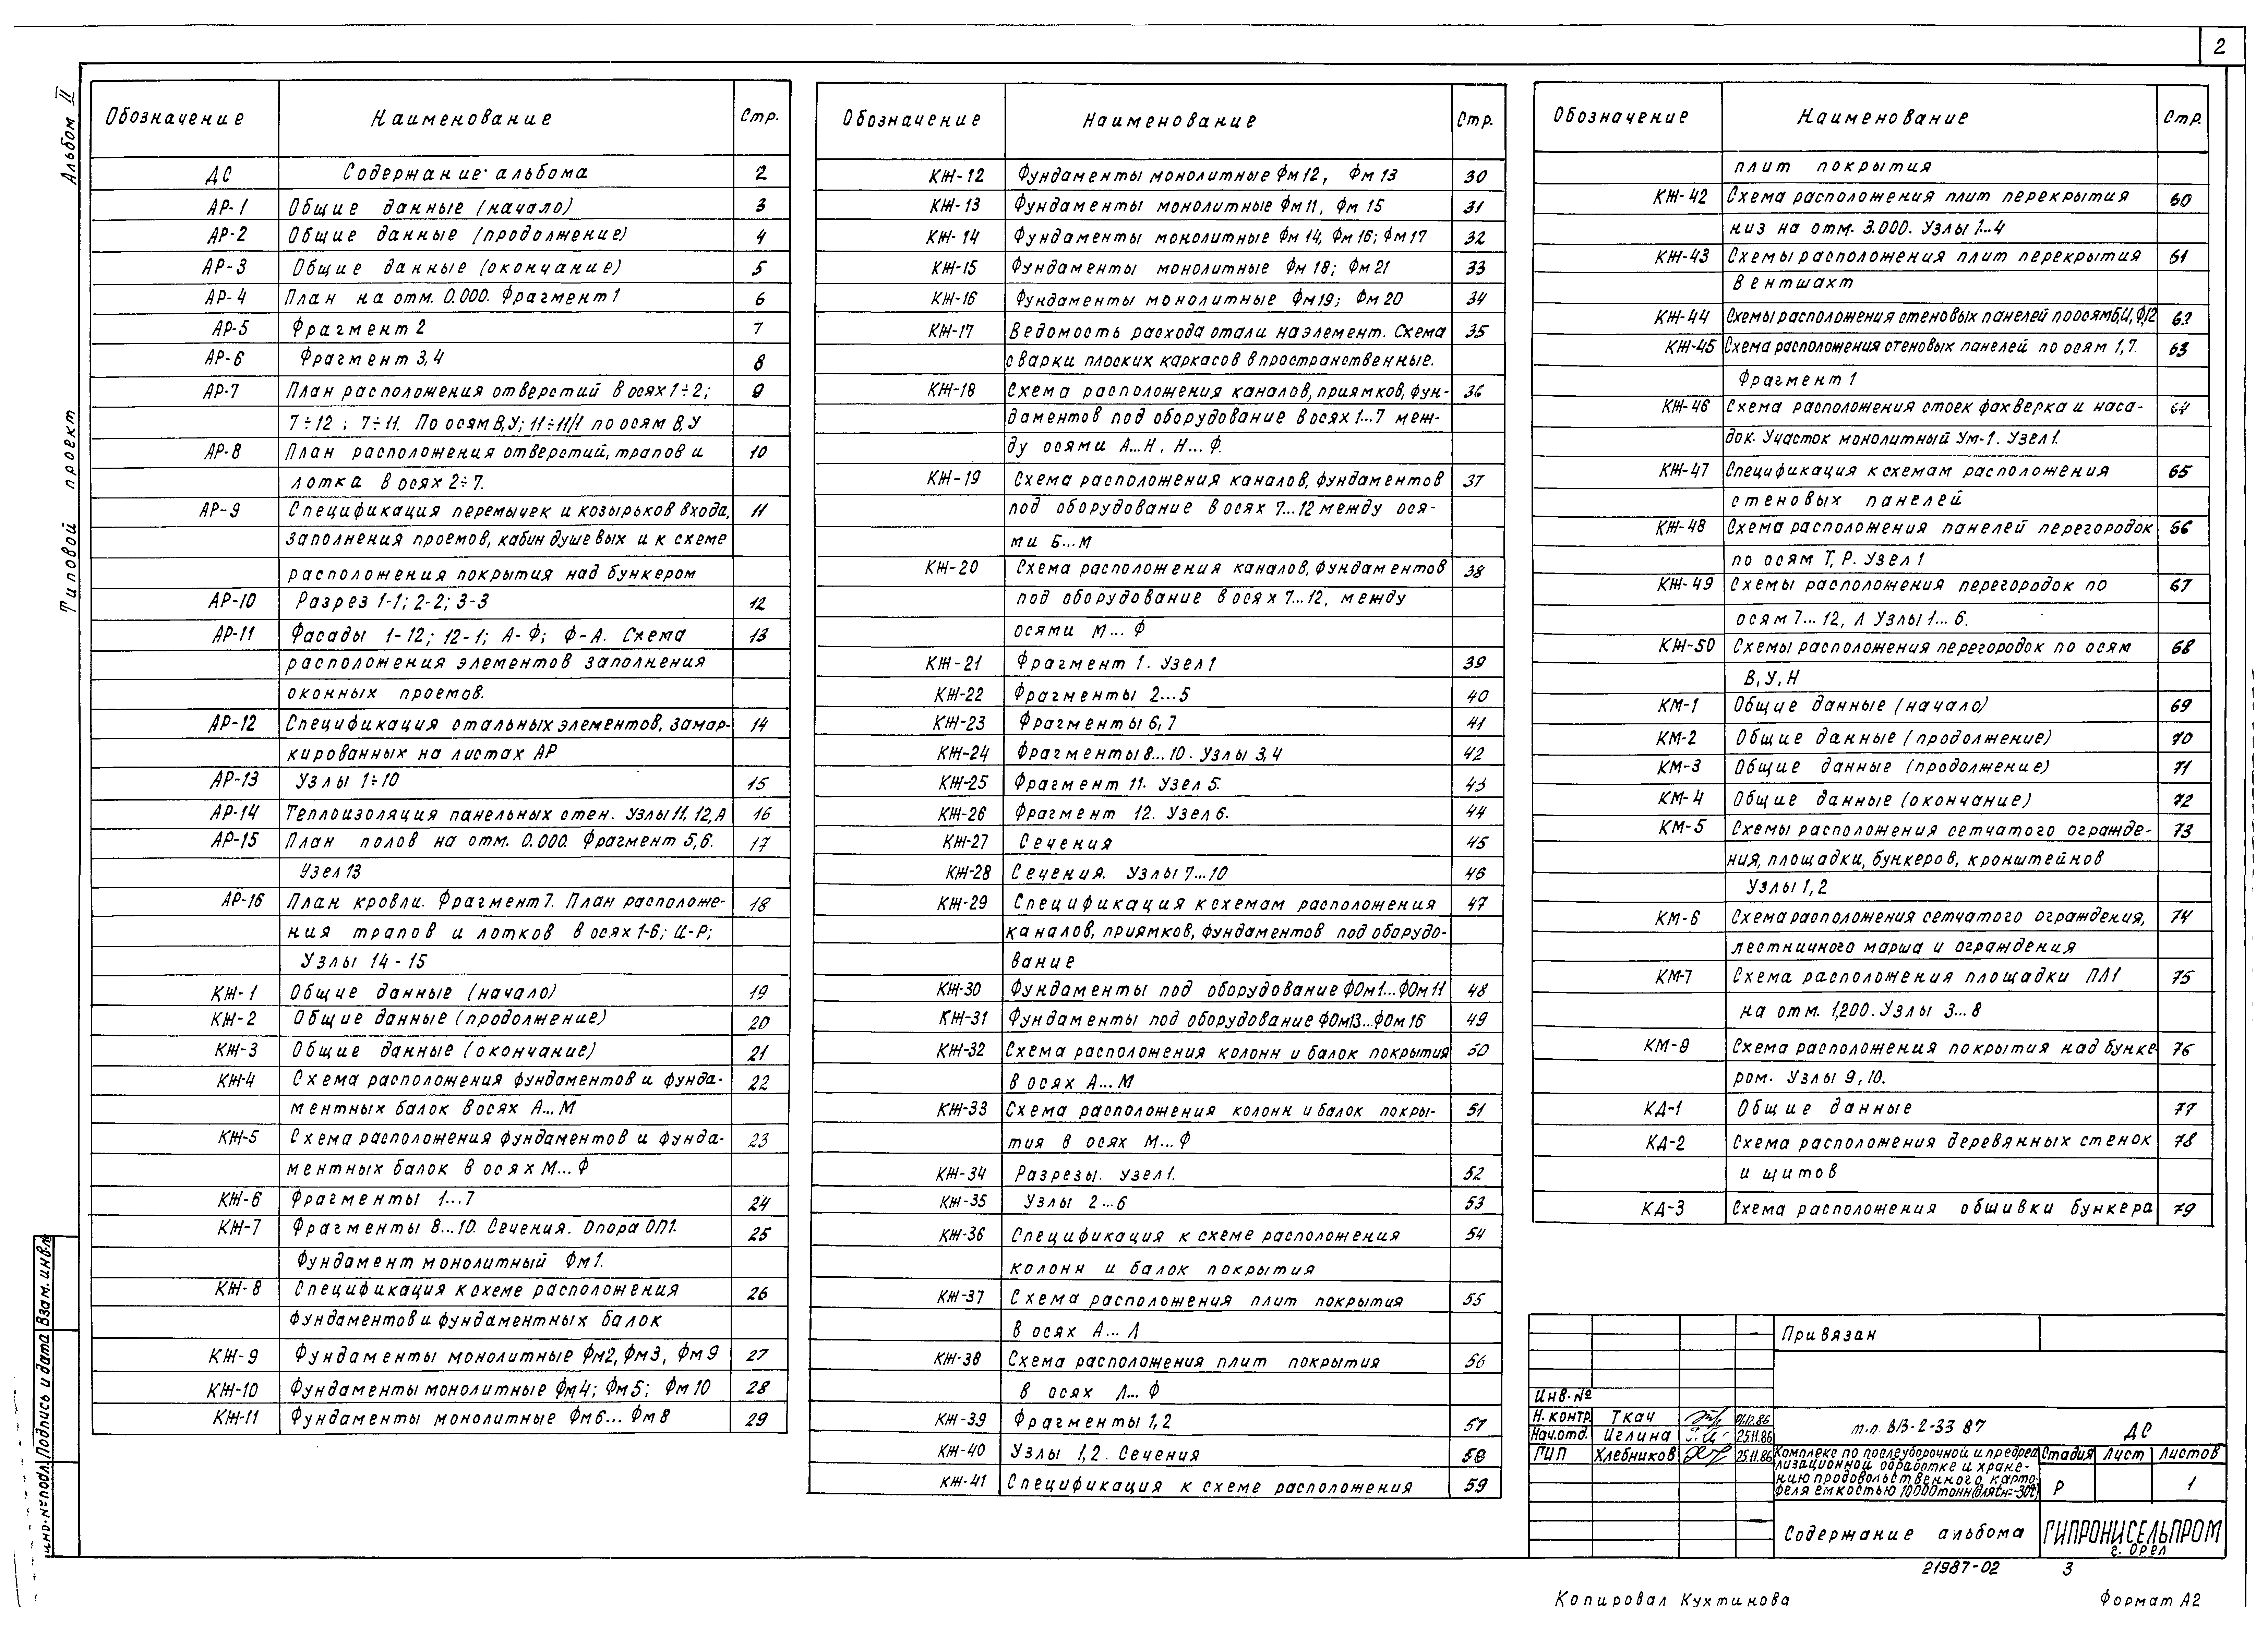 2
Альбом II
Типовой проект
Обозначение Наименование Стр.
ДС Содержание альбома 2
АР-1 Общие данные (начало) 3
АР-2 Общие данные (продолжение) 4
АР-3 Общие данные (окончание) 5
АР-4 План на отм. 0.000. Фрагмент 1 6
АР-5 Фрагмент 2 7
АР-6 Фрагмент 3,4 8
АР-7 План расположения отверстий в осях 1÷2; 9
7÷12; 7÷11. По осям В,У; 11÷11/1 по осям В,У
АР-8 План расположения отверстий, трапов и 10
лотка в осях 2÷7.
АР-9 Спецификация перемычек и козырьков входа, 11
заполнения проемов, кабин душевых и к схеме
расположения покрытия над бункером
АР-10 Разрез 1-1; 2-2; 3-3 12
АР-11 Фасады 1-12; 12-1; А-Ф; Ф-А. Схема 13
расположения элементов заполнения
оконных проемов.
АР-12 Спецификация стальных элементов, замар- 14
кированных на листах АР
АР-13 Узлы 1÷10 15
АР-14 Теплоизоляция панельных стен. Узлы 11, 12, А 16
АР-15 План полов на отм. 0.000. Фрагмент 5,6. 17
Узел 13
АР-16 План кровли. Фрагмент 7. План расположе- 18
ния трапов и лотков в осях 1-6; И-Р;
Узлы 14-15
КЖ-1 Общие данные (начало) 19
КЖ-2 Общие данные (продолжение) 20
КЖ-3 Общие данные (окончание) 21
КЖ-4 Схема расположения фундаментов и фунда- 22
ментных балок в осях А...М
КЖ-5 Схема расположения фундаментов и фунда- 23
ментных балок в осях М...Ф
КЖ-6 Фрагменты 1...7 24
КЖ-7 Фрагменты 8...10. Сечения. Опора ОП1. 25
Фундамент монолитный Фм1.
КЖ-8 Спецификация к схеме расположения 26
фундаментов и фундаментных балок
КЖ-9 Фундаменты монолитные Фм2, Фм3, Фм9 27
КЖ-10 Фундаменты монолитные Фм4; Фм5; Фм10 28
КЖ-11 Фундаменты монолитные Фм6... Фм8 29
Обозначение Наименование Стр.
КЖ-12 Фундаменты монолитные Фм12, Фм13 30
КЖ-13 Фундаменты монолитные Фм11, Фм15 31
КЖ-14 Фундаменты монолитные Фм14, Фм16; Фм17 32
КЖ-15 Фундаменты монолитные Фм18; Фм21 33
КЖ-16 Фундаменты монолитные Фм19; Фм20 34
КЖ-17 Ведомость расхода стали на элемент. Схема 35
сварки плоских каркасов в пространственные.
КЖ-18 Схема расположения каналов, приямков, фун- 36
даментов под оборудование в осях 1...7 меж-
ду осями А...Н, Н...Ф.
КЖ-19 Схема расположения каналов, фундаментов 37
под оборудование в осях 7...12 между ося-
ми Б...М
КЖ-20 Схема расположения каналов, фундаментов 38
под оборудование в осях 7...12, между
осями М...Ф
КЖ-21 Фрагмент 1. Узел 1 39
КЖ-22 Фрагменты 2...5 40
КЖ-23 Фрагменты 6, 7 41
КЖ-24 Фрагменты 8...10. Узлы 3,4 42
КЖ-25 Фрагмент 11. Узел 5. 43
КЖ-26 Фрагмент 12. Узел 6. 44
КЖ-27 Сечения 45
КЖ-28 Сечения. Узлы 7...10 46
КЖ-29 Спецификация к схемам расположения 47
каналов, приямков, фундаментов под оборудо-
вание
КЖ-30 Фундаменты под оборудование ФОм1...ФОм11 48
КЖ-31 Фундаменты под оборудование ФОм13...ФОм16 49
КЖ-32 Схема расположения колонн и балок покрытия 50
в осях А...М
КЖ-33 Схема расположения колонн и балок покры- 51
тия в осях М...Ф
КЖ-34 Разрезы. Узел 1. 52
КЖ-35 Узлы 2...6 53
КЖ-36 Спецификация к схеме расположения 54
колонн и балок покрытия
КЖ-37 Схема расположения плит покрытия 55
в осях А...Л
КЖ-38 Схема расположения плит покрытия 56
в осях Л...Ф
КЖ-39 Фрагменты 1,2 57
КЖ-40 Узлы 1,2. Сечения 58
КЖ-41 Спецификация к схеме расположения 59
Обозначение Наименование Стр.
плит покрытия
КЖ-42 Схема расположения плит перекрытия 60
низ на отм. 3.000. Узлы 1...4
КЖ-43 Схемы расположения плит перекрытия 61
вентшахт
КЖ-44 Схемы расположения стеновых панелей по осям Б,И,Ф,12 62
КЖ-45 Схема расположения стеновых панелей по осям 1,7. 63
Фрагмент 1
КЖ-46 Схема расположения стоек фахверка и наса- 64
док. Участок монолитный Ум-1. Узел 1.
КЖ-47 Спецификация к схемам расположения 65
стеновых панелей
КЖ-48 Схема расположения панелей перегородок 66
по осям Т, Р. Узел 1
КЖ-49 Схемы расположения перегородок по 67
осям 7...12, Л Узлы 1...6.
КЖ-50 Схемы расположения перегородок по осям 68
В, У, Н
КМ-1 Общие данные (начало) 69
КМ-2 Общие данные (продолжение) 70
КМ-3 Общие данные (продолжение) 71
КМ-4 Общие данные (окончание) 72
КМ-5 Схемы расположения сетчатого огражде- 73
ния, площадки, бункеров, кронштейнов
Узлы 1,2
КМ-6 Схема расположения сетчатого ограждения, 74
лестничного марша и ограждения
КМ-7 Схема расположения площадки ПЛ1 75
на отм. 1,200. Узлы 3...8
КМ-8 Схема расположения покрытия над бунке 76
ром. Узлы 9, 10.
КД-1 Общие данные 77
КД-2 Схема расположения деревянных стенок 78
и щитов
КД-3 Схема расположения обшивки бункера 79
Взам. инв.№
Подпись и дата
Инв.№ подл.
Привязан
Инв.№
Н. контр. Ткач 01.12.86
Нач. отд. Иглина 25.11.86
ГИП Хлебников 25.11.86
т.п. 813-2-33 87 ДС
Комплекс по послеуборочной и предреа
лизационной обработке и хране-
нию продовольственного карто-
феля емкостью 10000 тонн (для tн=-30°С)
Стадия Лист Листов
Р 1
Содержание альбома
ГИПРОНИСЕЛЬПРОМ
г. Орел
21987-02 3
Копировал Кухтинова Формат А2